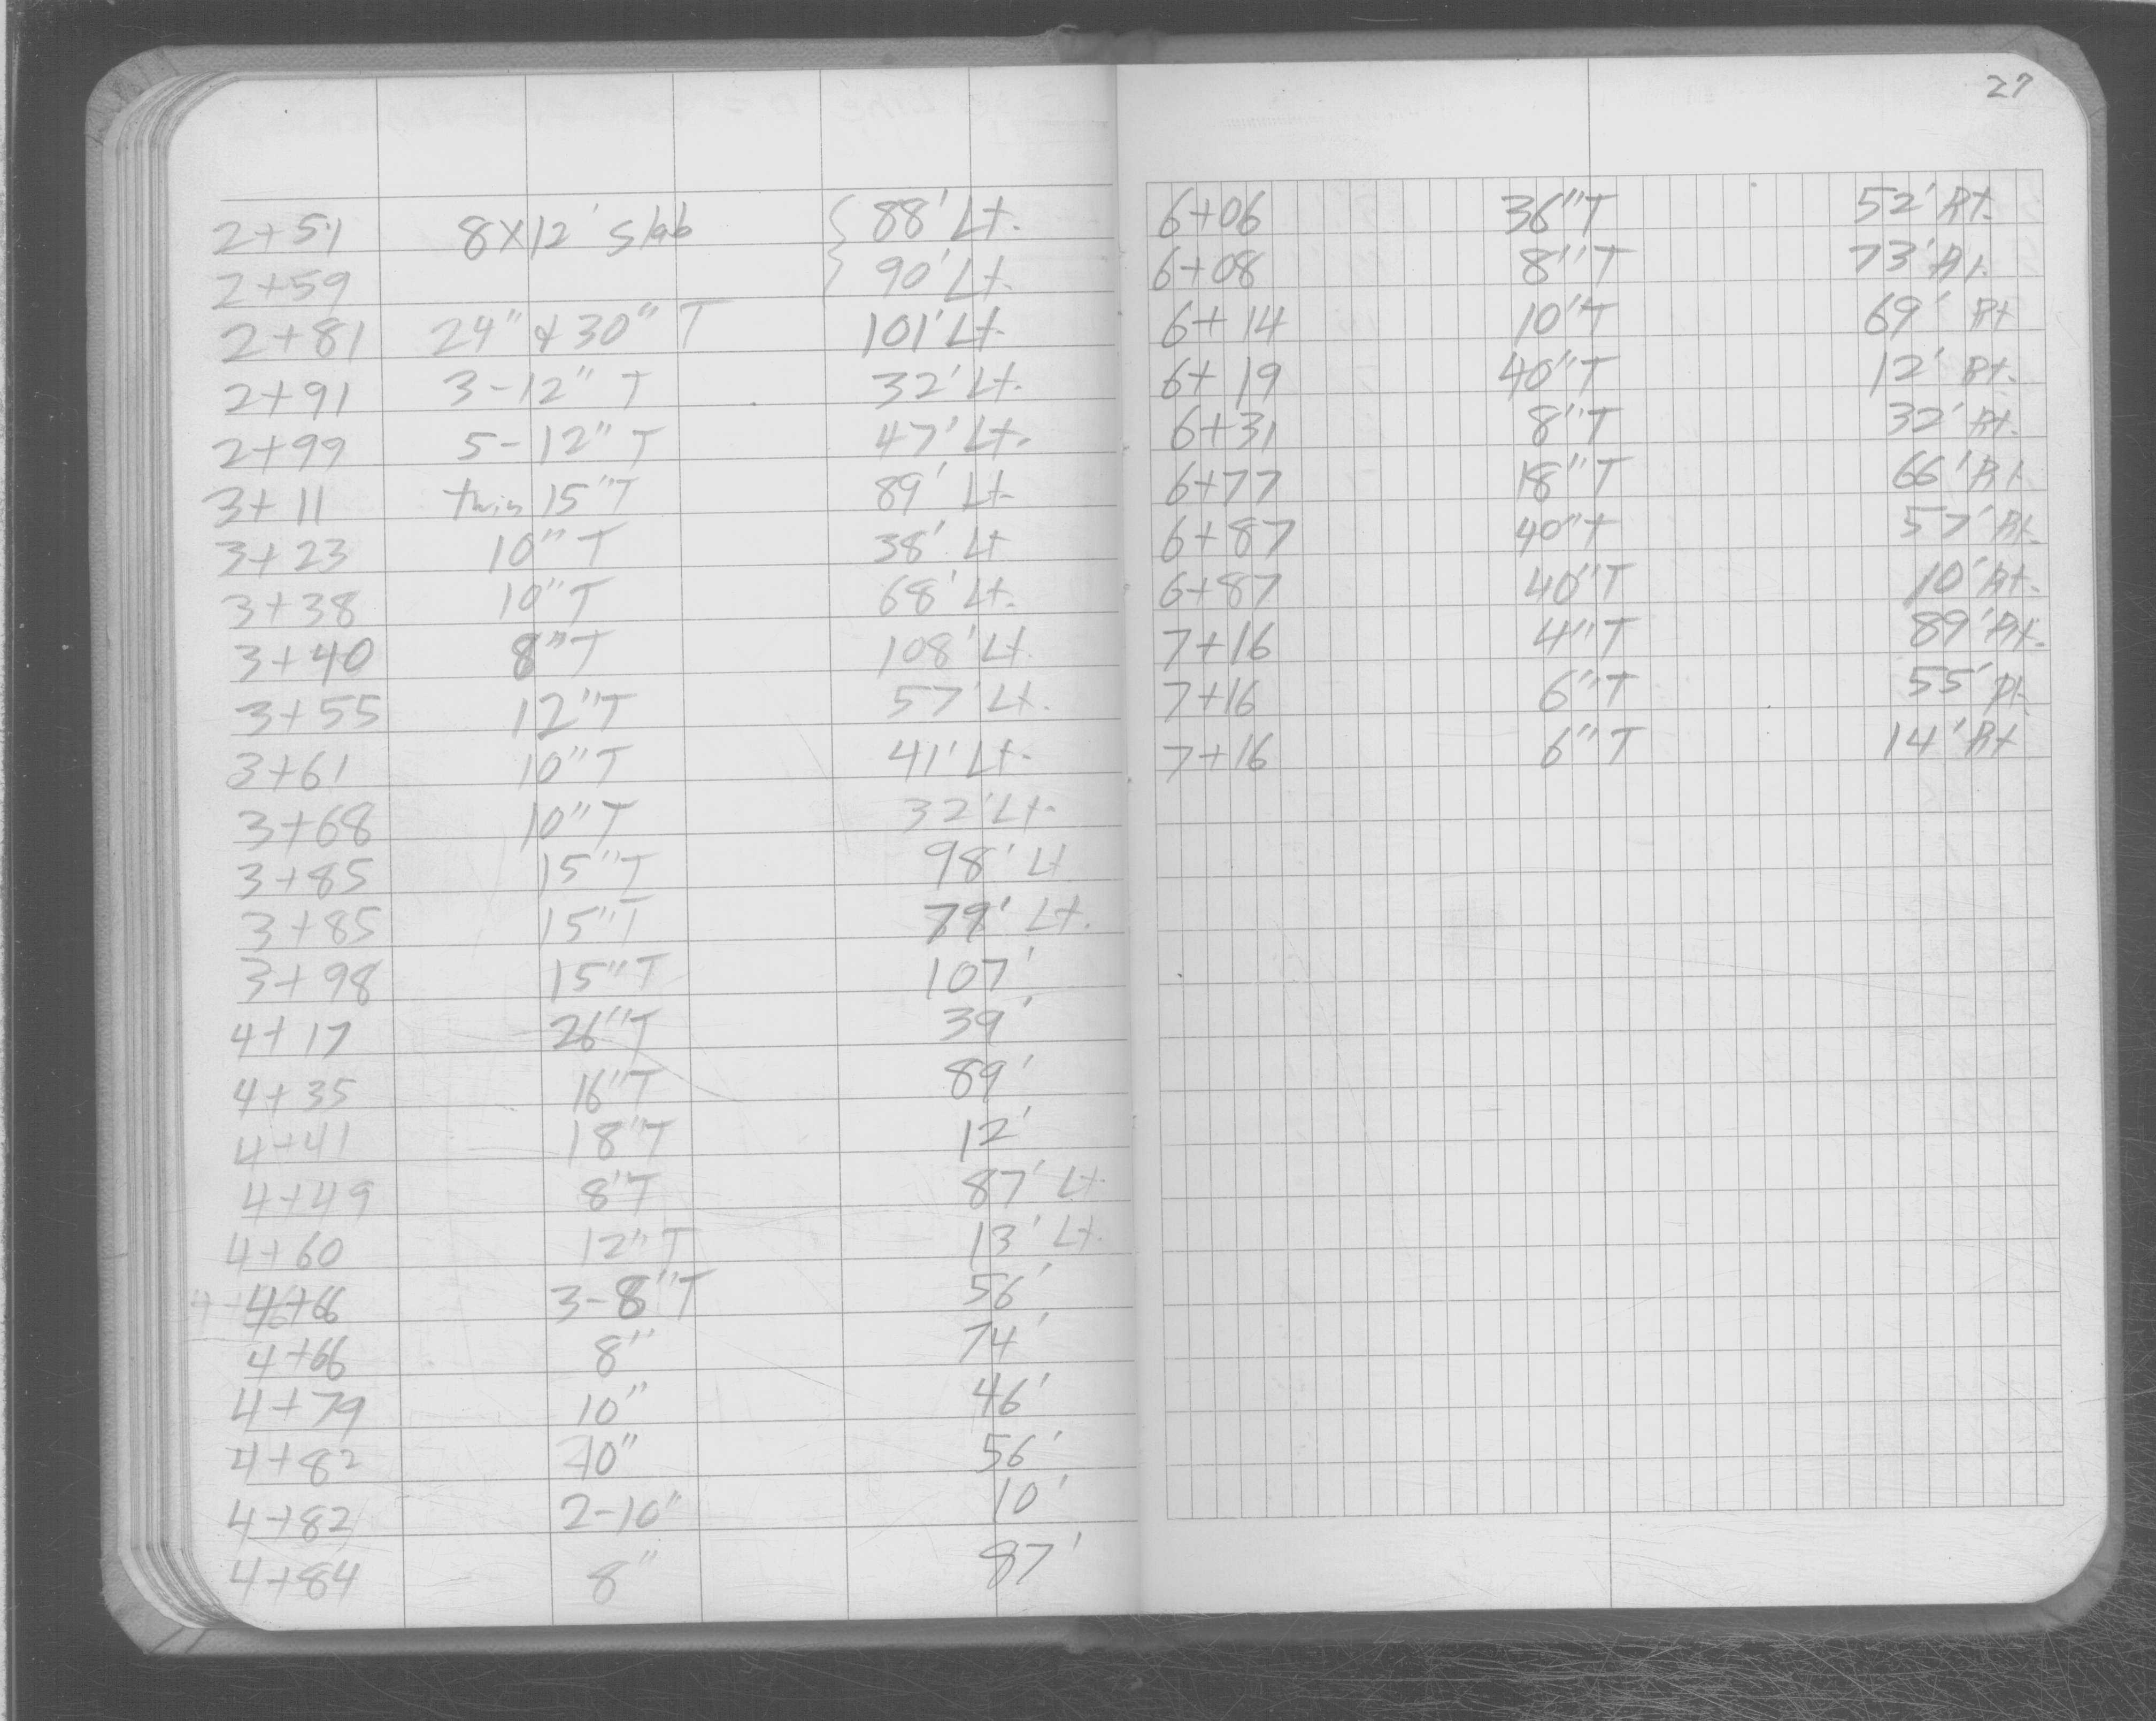 2+51 8X12' Slab { 88' Lt.
2+59 90' Lt.
2+81 24" & 30" T 101' Lt.
2+91 3-12" T 32' Lt.
2+99 5-12" T 47' Lt.
3+11 twin 15" T 89' Lt.
3+23 10" T 38' Lt
3+38 10" T 68' Lt.
3+40 8" T 108' Lt.
3+55 12" T 57' Lt.
3+61 10" T 41' Lt.
3+68 10" T 32' Lt.
3+85 15" T 98' Lt
3+85 15" T 79' Lt.
3+98 15" T 107'
4+17 26" T 39'
4+35 16" T 89'
4+41 18" T 12'
4+49 8' T 87' Lt.
4+60 12" T 13' Lt.
4+66 3-8" T 56'
4+66 8" 74'
4+79 10" 46'
4+82 10" 56'
4+82 2-10" 10'
4+84 8" 87'
27
6+06 36" T 52' Rt.
6+08 8" T 73' Rt.
6+14 10' T 69' Rt
6+19 40" T 12' Rt.
6+31 8" T 32' Rt.
6+77 18" T 66' Rt
6+87 40" T 57' Rt.
6+87 40" T 10' Rt.
7+16 4" T 89' Rt.
7+16 6" T 55' Rt.
7+16 6" T 14' Rt